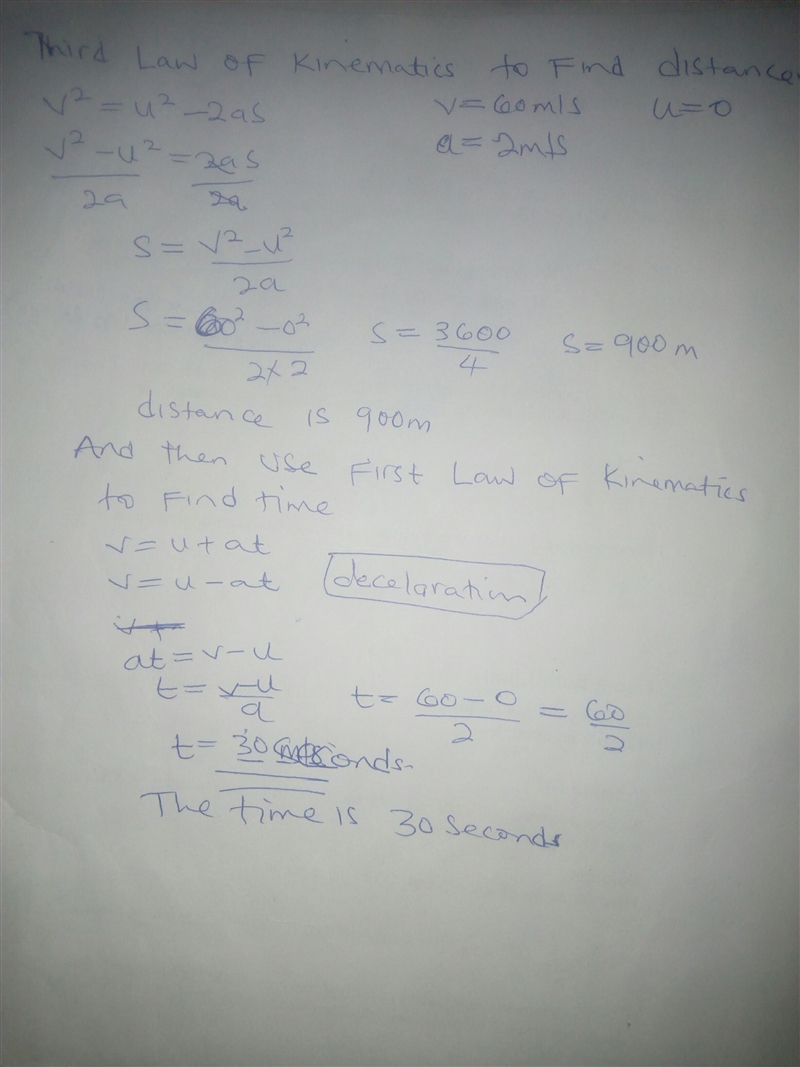 Third Law of Kinematics to Find distance.
v² = u² - 2as v = 60m/s u = 0
a = 2m/s
v² - u² = 2as
2a 2a
s = v² - u²
2a
s = 60² - 0² s = 3600 s = 900m
2 x 2 4
distance is 900m
And then use First Law of Kinematics
to Find time
v = u + at
v = u - at decelaration
at = v - u
t = v-u t = 60 - 0 = 60
a 2 2
t = 30 seconds.
The time is 30 seconds